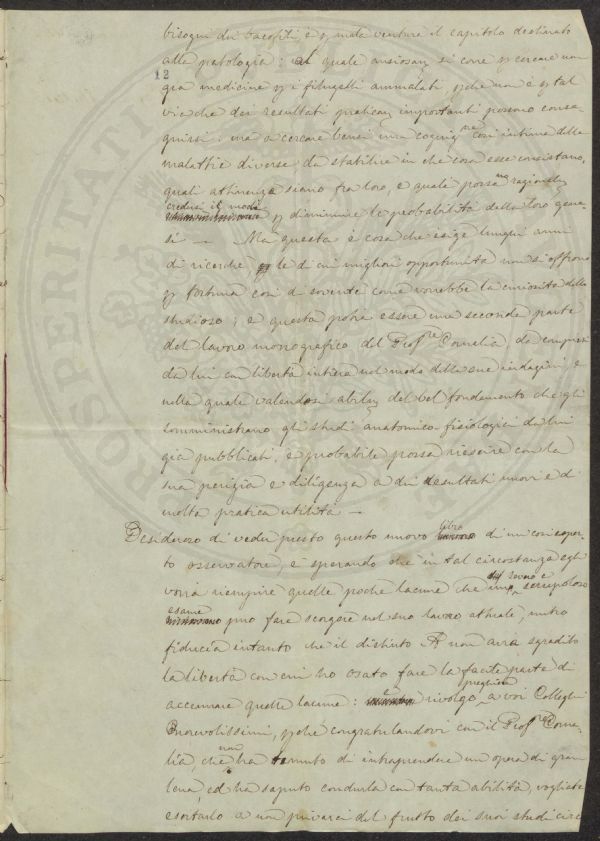 bisogni dei bacofili è p mala ventura il capitolo destinato
alla patologia: al quale ansiosam si corre p cercare non
12
già medicine p i filugelli ammalati, pchè non è p tal
via che dei risultati praticam importanti possono conse-
guirsi; ma a cercare bensì una cogniz.ne così intima delle
malattie diverse da stabilire in che cosa esse consistano,
quali attinenze siano fra loro, e quale possa razionalm
credersi il modo
p diminuire le probabilità della loro gene-
si — Ma questa è cosa che esige lunghi anni
di ricerche, le di cui migliori opportunità non si offrono
p fortuna così di sovente come vorrebbe la curiosità dello
studioso; e questa potrà essere una seconda parte
del lavoro monografico del Prof.re Cornalia da compiersi
da lui con libertà intiera nel modo delle sue indagini, e
nella quale valendosi abilm del bel fondamento che gli
somministrano gli studi anatomico-fisiologici da lui
già pubblicati, è probabile possa riescire con la
sua perizia e diligenza a dei resultati nuovi e di
molta pratica utilità —
Desideroso di veder presto questo nuovo libro di un così esper-
to osservatore, e sperando che in tal circostanza egli
vorrà riempire quelle poche lacune che un severo e scrupoloso
esame può fare scorgere nel suo lavoro attuale, nutro
fiducia intanto che il distinto A non avrà sgradito
la libertà con cui ho osato fare la facile parte di
accennare quelle lacune: rivolgo preghiera a voi Colleghi
Onorevolissimi, pchè congratulandovi con il Prof.re Corna-
lia, che non ha temuto di intraprendere un opera di gran
lena, ed ha saputo condurla con tanta abilità, vogliate
esortarlo a non privarci del frutto dei suoi studi circa
PROSPERITÀ